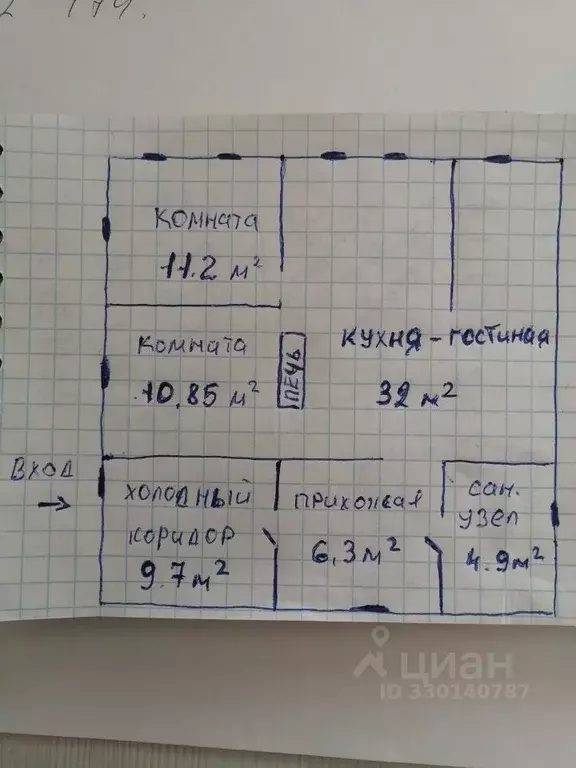 174.
комната
11.2 м²
комната
10,85 м²
печь
кухня - гостиная
32 м²
вход
холодный
коридор
9.7 м²
прихожая
6,3 м²
сан.
узел
4.9 м²
циан
ID 330140787